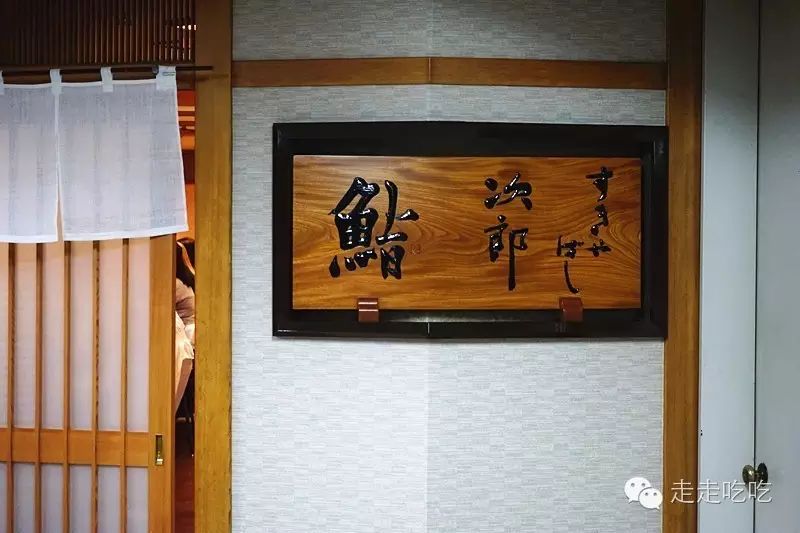 すきやばし
次郎
鮨
走走吃吃